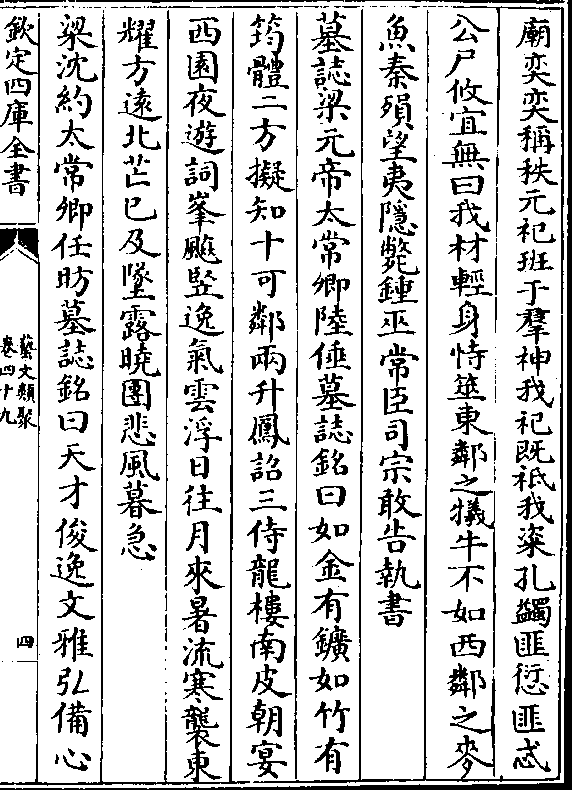 廟奕奕稱秩元祀班于羣神我祀既祗我粢孔蠲匪愆匪忒
公尸攸宜無曰我材輕身恃筮東鄰之犧牛不如西鄰之麥
魚秦殞望夷隱斃鍾巫常臣司宗敢告執書
墓誌梁元帝太常卿陸倕墓誌銘曰如金有鑛如竹有
筠體二方擬知十可鄰兩升鳳詔三侍龍樓南皮朝宴
西園夜遊詞峯飈竪逸氣雲浮日往月來暑流寒襲東
耀方遠北芒已及墜露曉團悲風暮急
梁沈約太常卿任昉墓誌銘曰天才俊逸文雅弘備心
欽定四庫全書
藝文類聚
卷四十九
四